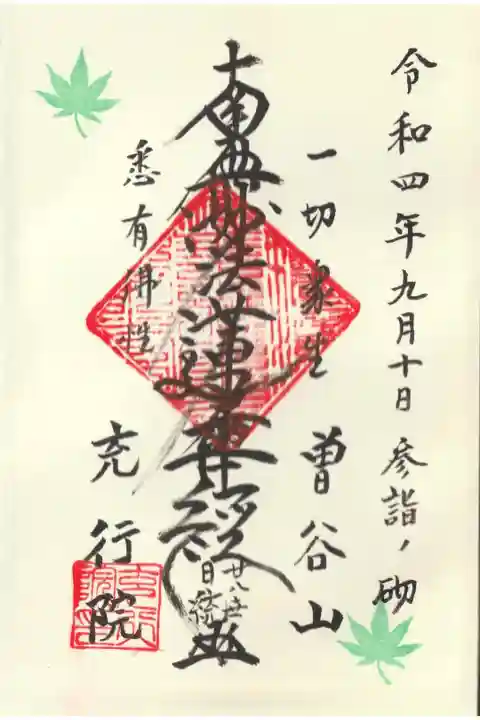 令和四年九月十日 参詣ノ砌
一切衆生
曽谷山
南無妙法蓮華経
廿八世
悉有佛性
充行院